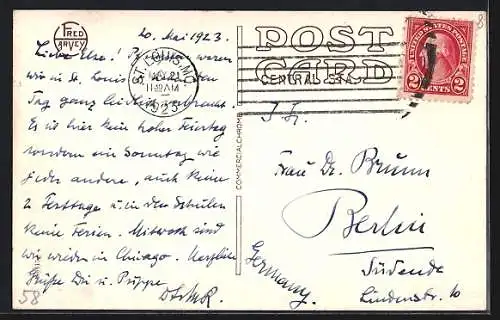 FRED HARVEY
20. Mai 1923.
Liebe Else! Pfingsten waren
wir in St. Louis
Tag ganz
Es ist hier kein hoher Feiertag
sondern ein Sonntag wie
jeder andere, auch keine
2 Festtage u. in den Schulen
keine Ferien. Mittwoch sind
wir wieder in Chicago. Herzliche
Grüße Dir u. Puppe
58
ST. LOUIS, MO.
MAY 21
11-30 AM
1923
CENTRAL STA.
POST
CARD
COMMERCIALCHROME
UNITED STATES POSTAGE
2 CENTS 2
Frau Dr. Brunn
Berlin
Südende
Lindenstr. 10
Germany.